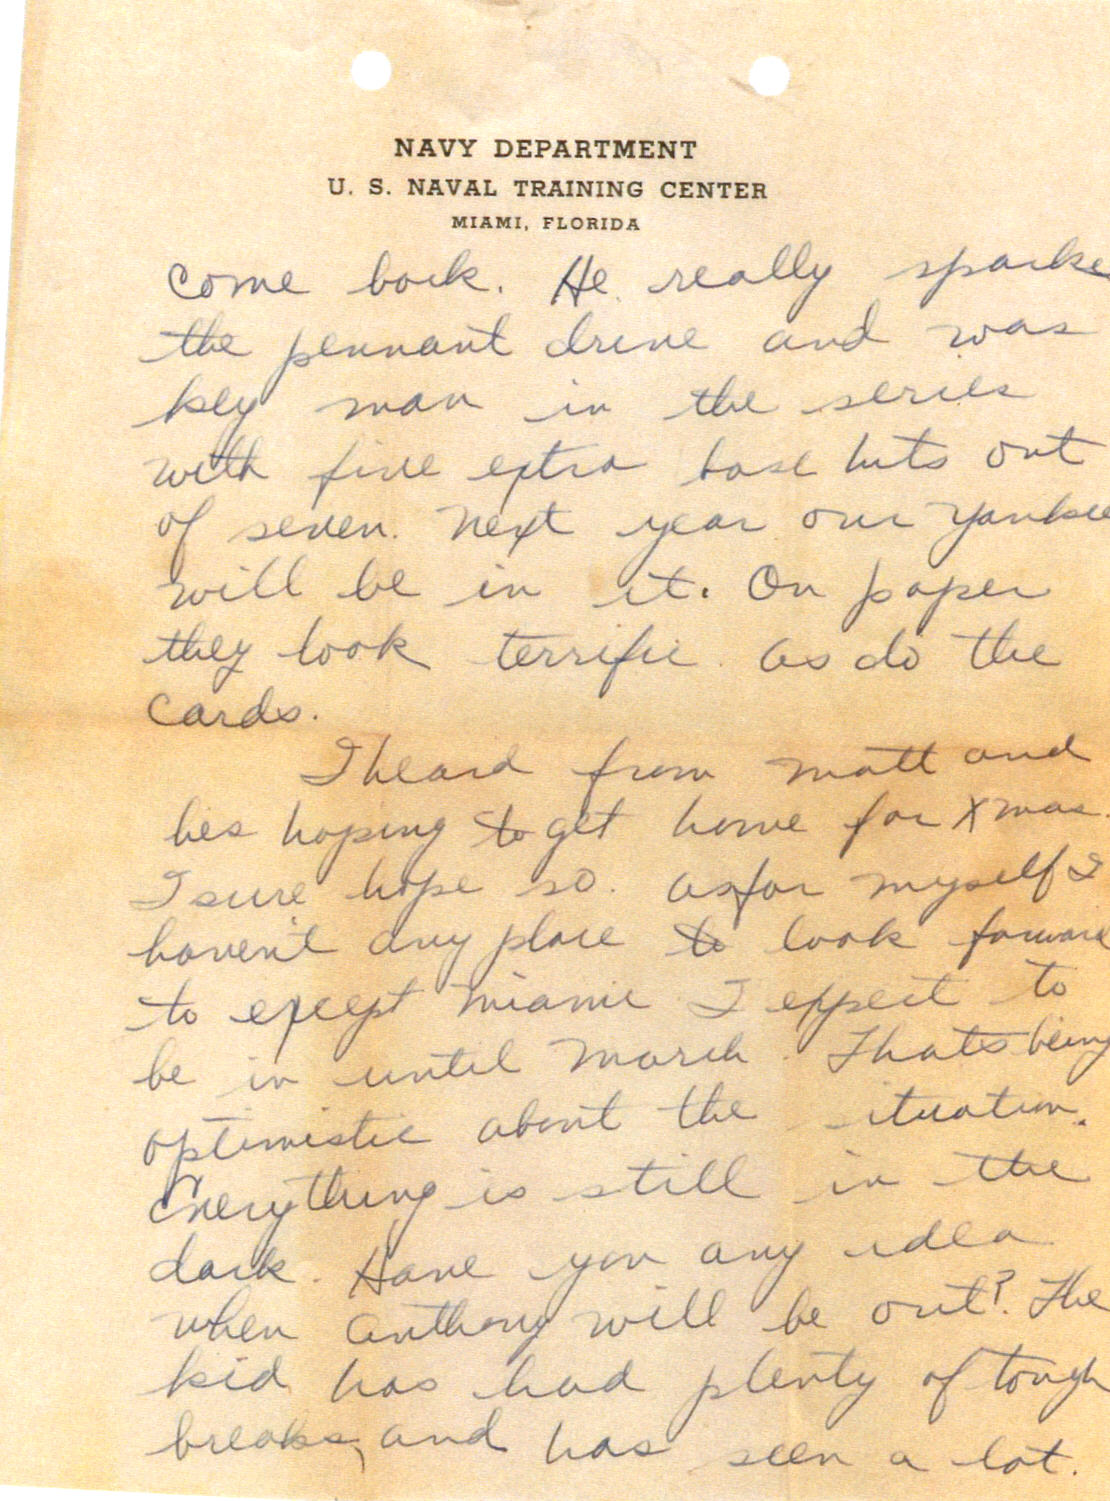 NAVY DEPARTMENT
U. S. NAVAL TRAINING CENTER
MIAMI, FLORIDA
come back. He really sparke
the pennant drive and was
key man in the series
with five extra base hits out
of seven. Next year our Yankee
will be in it. On paper
they look terrific as do the
Cards.
I heard from Matt and
hes hoping to get home for Xmas.
I sure hope so. As far myself I
haven't any place to look forward
to except Miami I expect to
be in until March. Thats being
optimistic about the situation.
Everything is still in the
dark. Have you any idea
when Anthony will be out? The
kid has had plenty of tough
breaks, and has seen a lot.